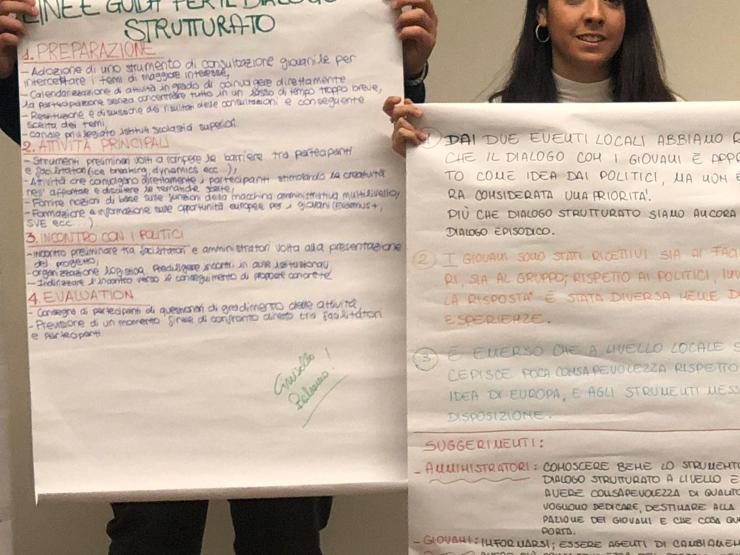 LINEE GUIDA PER IL DIALOGO
STRUTTURATO
1. PREPARAZIONE
- Adozione di uno strumento di consultazione giovanile per
intercettare i temi di maggiore interesse,
- Calendarizzazione di attività in grado di coinvolgere direttamente
la partecipazione senza concentrare tutto in un lasso di tempo troppo breve,
- Restituzione e discussione dei risultati delle consultazioni e conseguente
scelta dei temi,
- Canale privilegiato istituti scolastici superiori.
2. ATTIVITÀ PRINCIPALI
- Strumenti preliminari volti a rompere le barriere tra partecipanti
e facilitatori (ice breaking, dynamics ecc...),
- Attività che coinvolgano direttamente i partecipanti stimolando la creatività
nell'affrontare e discutere le tematiche scelte,
- Fornire nozioni di base sulle funzioni della macchina amministrativa multilivello,
- Formazione e informazione sulle opportunità europee per i giovani (Erasmus+,
SVE ecc...)
3. INCONTRO CON I POLITICI
- Incontro preliminare tra facilitatori e amministratori volta alla presentazione
del progetto,
- organizzazione logistica, prediligere incontri in aule istituzionali,
- Indirizzare l'incontro verso il conseguimento di proposte concrete
4. EVALUATION
- Consegna ai partecipanti di questionari di gradimento delle attività,
- Previsione di un momento finale di confronto diretto tra facilitatori
e partecipanti
Cinisello
Balsamo!
1 DAI DUE EVENTI LOCALI ABBIAMO
CHE IL DIALOGO CON I GIOVANI È
TO COME IDEA DAI POLITICI, MA NON
RA CONSIDERATA UNA PRIORITA'.
PIÙ CHE DIALOGO STRUTTURATO SIAMO ANCORA
DIALOGO EPISODICO.
2 I GIOVANI SONO STATI RICETTIVI SIA AI
RI, SIA AL GRUPPO; RISPETTO AI POLITICI,
LA RISPOSTA È STATA DIVERSA NELLE
ESPERIENZE.
3 È EMERSO CHE A LIVELLO LOCALE
CEPISCE POCA CONSAPEVOLEZZA RISPETTO
IDEA DI EUROPA, E AGLI STRUMENTI
DISPOSIZIONE.
SUGGERIMENTI:
- AMMINISTRATORI: CONOSCERE BENE LO STRUMENTO
DIALOGO STRUTTURATO A LIVELLO
AVERE CONSAPEVOLEZZA DI
VOGLIONO DEDICARE, DESTINARE ALLA
PAZIONE DEI GIOVANI E CHE COSA
PORTA.
- GIOVANI: INFORMARSI; ESSERE AGENTI DI